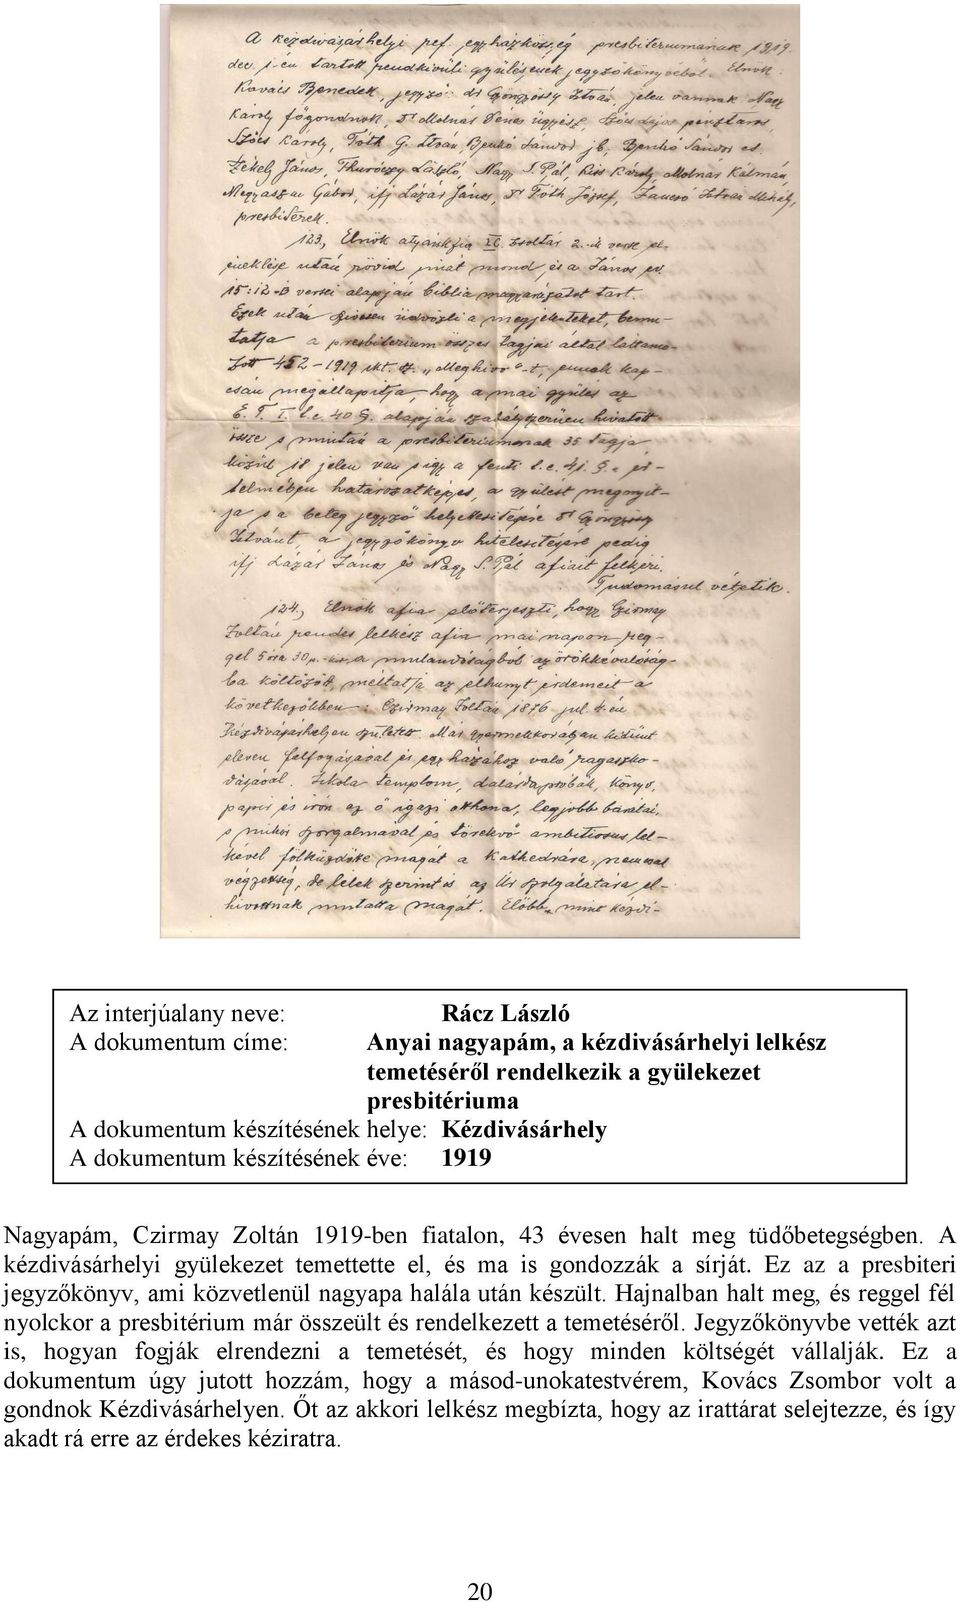 A kézdivásárhelyi ref. egyházközség presbiteriumának 1919.
dec. 1-én tartott rendkivüli gyűlésének jegyzőkönyvéből. Elnök:
Kovács Benedek, jegyző: dr Gyöngyösy István, jelen vannak Nagy
Károly főgondnok, Dr Molnár Dénes ügyész, Szőcs Lajos pénztáros,
Szőcs Károly, Tóth G. István, Benkó Sándor jb, Benkó Sándor es.
Székely János, Thuróczy László, Nagy S. Pál, Kiss Károly, Molnár Kálmán,
Megyaszai Gábor, ifj Lázár János, Dr Tóth József, Jancsó István Mihály,
presbiterek.
123., Elnök atyánkfia IC. zsoltár 2.-ik vers el-
éneklése után rövid imát mond és a János ev.
15:12-B versei alapján bibliamagyarázatot tart.
Ezek után szivesen üdvözli a megjelenteket, bemu-
tatja a presbiterium összes tagjai által láttamo-
zott 452-1919 ikt. sz. „Meghivó"-t, ennek kap-
csán megállapitja, hogy a mai gyűlés az
E. T. I. t.c. 40 §. alapján szabályszerüen hivatott
össze s miután a presbiteriumnak 35 tagja
közül 18 jelen van s igy a fenti t.c. 41. §. ér-
telmében határozatképes, a gyülést megnyit-
ja s a beteg jegyző helyettesitésére Dr Gyöngyösy
Istvánt, a jegyzőkönyv hitelesitésére pedig
ifj Lázár János és Nagy S. Pál afiait felkéri.
Tudomásul vétetik.
124., Elnök afia előterjeszti, hogy Czirmay
Zoltán rendes lelkész afia mai napon reg-
gel 5 óra 30 p.-kor a mulandóságból az örökkévalóság-
ba költözött, méltatja az elhunyt érdemeit a
következőkben: Czirmay Zoltán 1876 jul 4.-én
Kézdivásárhelyen született. Már gyermekkorában kitünt
eleven felfogásával és egyházához való ragaszko-
dásával. Iskola templom, dalárdapróbák, könyv,
papir és irón az ő igazi otthona, legjobb barátai,
s mikor szorgalmával és törekvő ambitiosus lel-
kével fölküzdötte magát a Kathedrára, nemcsak
végzettség, de lélek szerint is az Úr szolgálatára el-
hivottnak mutatta magát. Előbb, mint kézdi-
Az interjúalany neve: Rácz László
A dokumentum címe: Anyai nagyapám, a kézdivásárhelyi lelkész
temetéséről rendelkezik a gyülekezet
presbitériuma
A dokumentum készítésének helye: Kézdivásárhely
A dokumentum készítésének éve: 1919
Nagyapám, Czirmay Zoltán 1919-ben fiatalon, 43 évesen halt meg tüdőbetegségben. A
kézdivásárhelyi gyülekezet temettette el, és ma is gondozzák a sírját. Ez az a presbiteri
jegyzőkönyv, ami közvetlenül nagyapa halála után készült. Hajnalban halt meg, és reggel fél
nyolckor a presbitérium már összeült és rendelkezett a temetéséről. Jegyzőkönyvbe vették azt
is, hogyan fogják elrendezni a temetését, és hogy minden költségét vállalják. Ez a
dokumentum úgy jutott hozzám, hogy a másod-unokatestvérem, Kovács Zsombor volt a
gondnok Kézdivásárhelyen. Őt az akkori lelkész megbízta, hogy az irattárat selejtezze, és így
akadt rá erre az érdekes kéziratra.
20